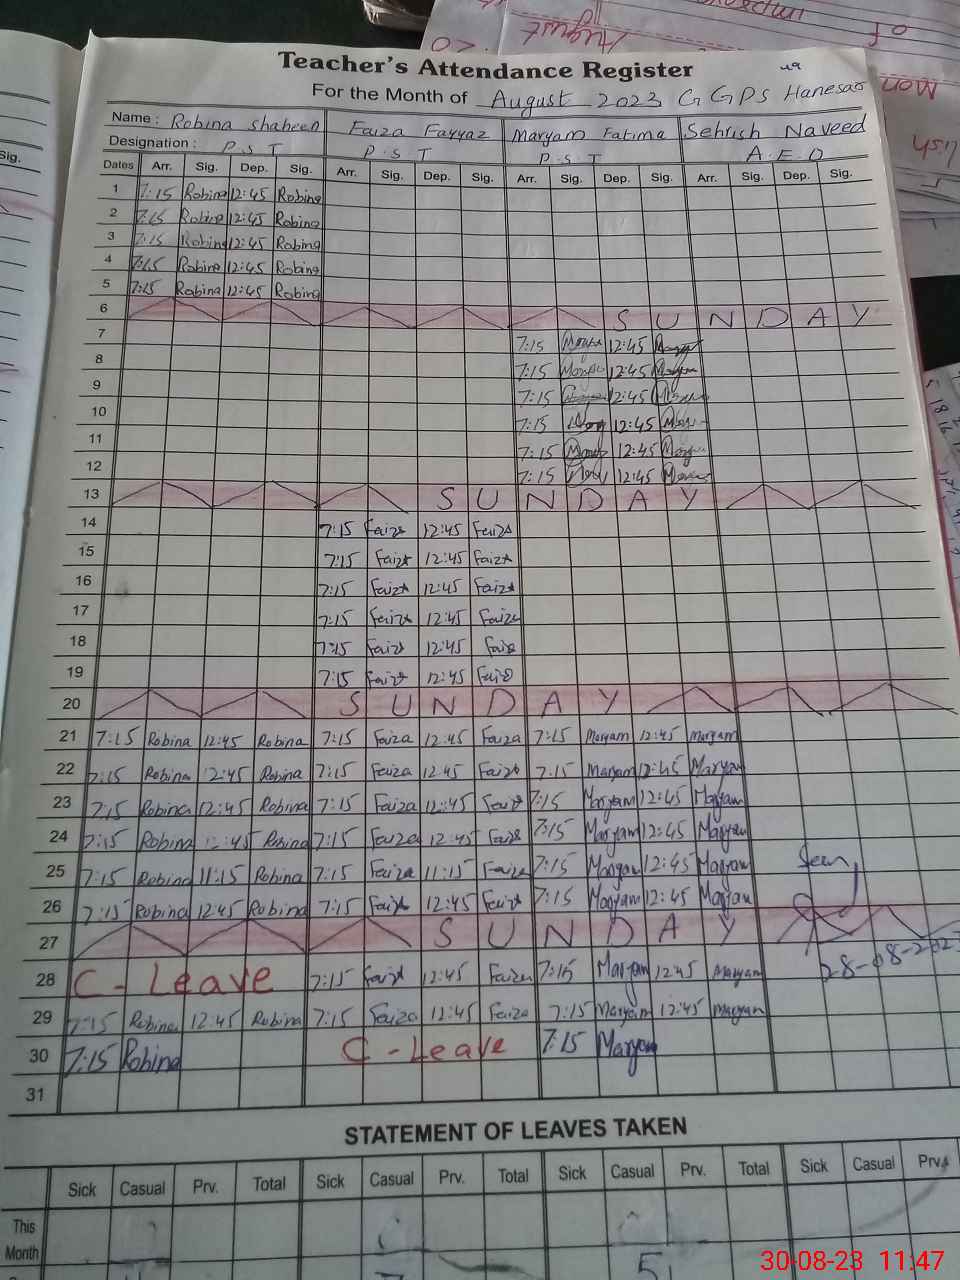 of
August
Mon
Teacher's Attendance Register
49
For the Month of August 2023 GGPS Hanesar
Name : Robina Shaheen Faiza Fayyaz Maryam Fatima Sehrish Naveed
Designation : P.S.T P.S.T P.S.T A.E.O
Sig.
Dates Arr. Sig. Dep. Sig. Arr. Sig. Dep. Sig. Arr. Sig. Dep. Sig. Arr. Sig. Dep. Sig.
1 7:15 Robina 12:45 Robina
2 7:15 Robina 12:45 Robina
3 7:15 Robina 12:45 Robina
4 7:15 Robina 12:45 Robina
5 7:15 Robina 12:45 Robina
6 SUNDAY
7 7:15 12:45
8 7:15 12:45
9 7:15 12:45
10 7:15 12:45
11 7:15 12:45
12 7:15 12:45
13 SUNDAY
14 7:15 Faiza 12:45 Faiza
15 7:15 Faiza 12:45 Faiza
16 7:15 Faiza 12:45 Faiza
17 7:15 Faiza 12:45 Faiza
18 7:15 Faiza 12:45 Faiza
19 7:15 Faiza 12:45 Faiza
20 SUNDAY
21 7:15 Robina 12:45 Robina 7:15 Faiza 12:45 Faiza 7:15 Maryam 12:45 Maryam
22 7:15 Robina 12:45 Robina 7:15 Faiza 12:45 Faiza 7:15 Maryam 12:45 Maryam
23 7:15 Robina 12:45 Robina 7:15 Faiza 12:45 Faiza 7:15 Maryam 12:45 Maryam
24 7:15 Robina 12:45 Robina 7:15 Faiza 12:45 Faiza 7:15 Maryam 12:45 Maryam
25 7:15 Robina 11:15 Robina 7:15 Faiza 11:15 Faiza 7:15 Maryam 12:45 Maryam Seen
26 7:15 Robina 12:45 Robina 7:15 Faiza 12:45 Faiza 7:15 Maryam 12:45 Maryam
27 SUNDAY
28 C-Leave 7:15 Faiza 12:45 Faiza 7:15 Maryam 12:45 Maryam 28-08-2023
29 7:15 Robina 12:45 Robina 7:15 Faiza 12:45 Faiza 7:15 Maryam 12:45 Maryam
30 7:15 Robina C-Leave 7:15 Maryam
31
STATEMENT OF LEAVES TAKEN
Sick Casual Prv. Total Sick Casual Prv. Total Sick Casual Prv. Total Sick Casual Prv.
This
Month
30-08-23 11:47